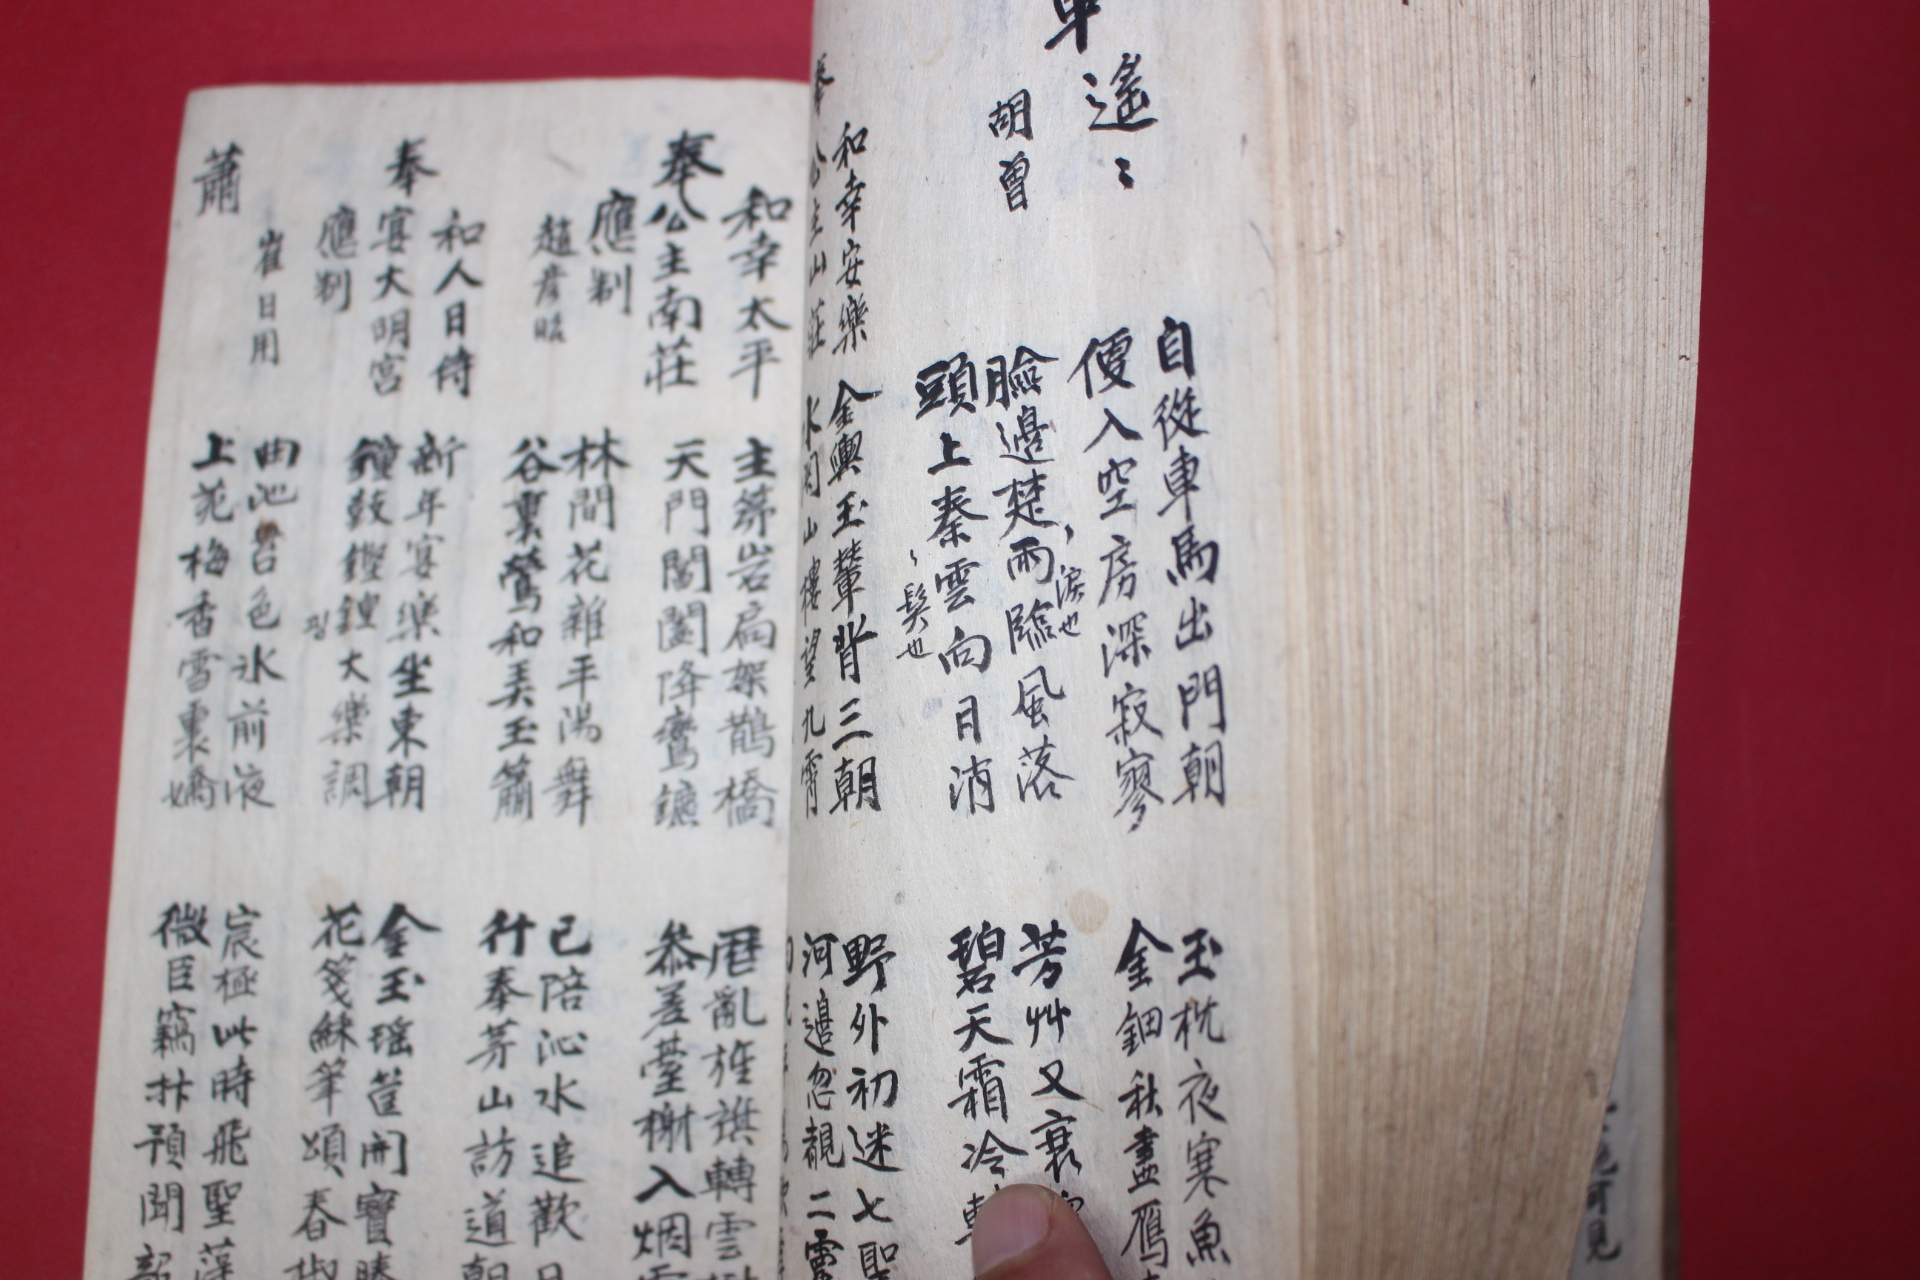 車
遙〻
胡曾
自從車馬出門朝
便入空房深寂寥
臉邊楚雨臨風落
淚也
頭上秦雲向日消
髮也
玉枕夜寒魚
金鈿秋盡鴈
芳艸又衰
碧天霜冷
和幸安樂
奉公主山莊
金輿玉輦背三朝
水閣山樓望九霄
野外初迷七聖
河邊忽覩二靈
和幸太平
奉公主南莊
應制
趙彦昭
主第岩扃架鵲橋
天門閶闔降鸞鑣
曆亂旌旗轉雲
叅差臺榭入烟
林間花雜平陽舞
谷裏鶯和美玉簫
已陪沁水追歡日
行奉茅山訪道朝
和人日侍
奉宴大明宮
應制
崔日用
新年宴樂坐東朝
鐘鼓鏗鍠大樂調
金玉瑶筐開寶勝
花箋穌筆頌春椒
曲池苔色氷前液
上苑梅香雪裏嬌
宸極此時飛聖藻
微臣竊抃預聞韶
蕭